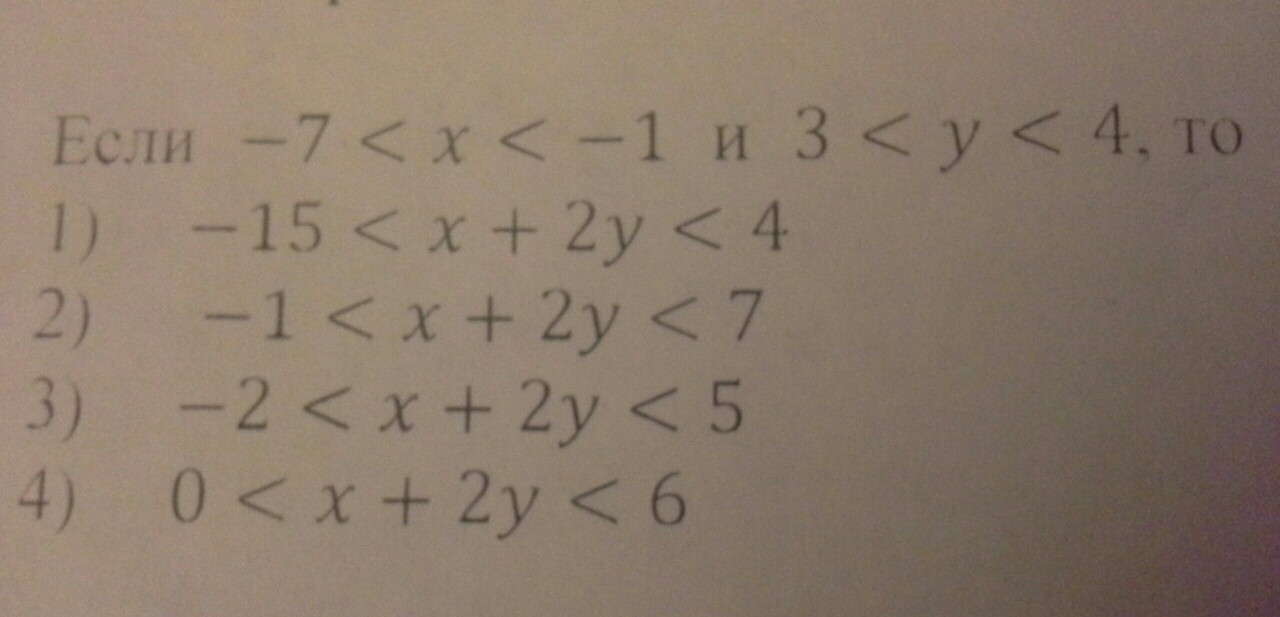 Если −7 < x < −1 и 3 < y < 4, то
1) −15 < x + 2y < 4
2) −1 < x + 2y < 7
3) −2 < x + 2y < 5
4) 0 < x + 2y < 6